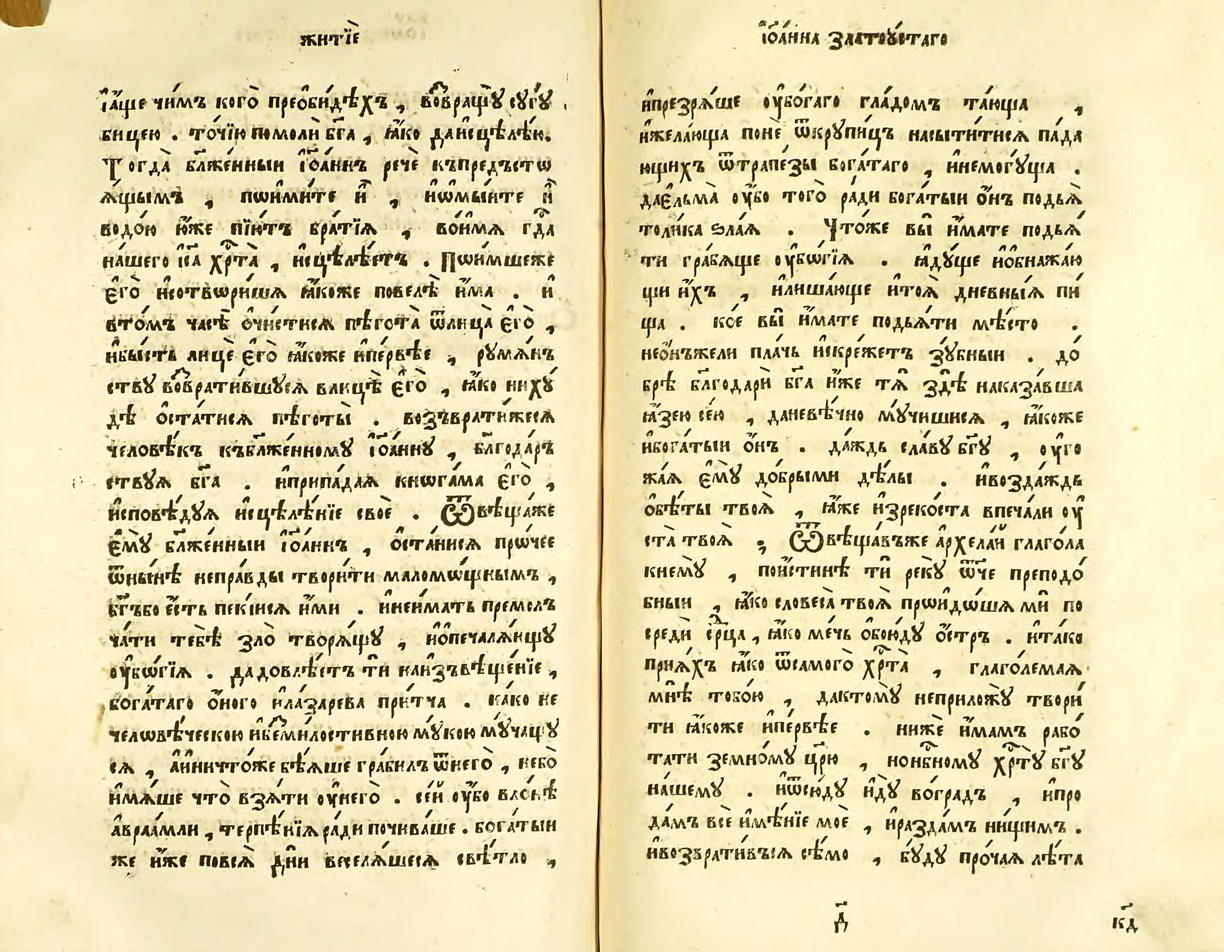 житїѐ
і҆а́ще чи́мъ кого̀ преѻби́дѣхъ , во́звращꙋ̀ сꙋгꙋ́
бицею . то́чїю помоли̑ бг҃а , ꙗ҆́ко даи҆сцѣлѣ́ю.
Тогда̀ бл҃же́нныи і҆ѻа́ннъ речѐ къпредъстѡ
ѧ́щымъ , поими́те и҆̀ , и҆ѡмы́ите и҆̀
водо́ю ю҆́же пїю́тъ бра́тїѧ , во́имѧ гд҃а
на́шего і҆с҃а хрⷭ҇та̀ , и҆сцѣлѣ́етъ . Пои́мшеже
є҆го̀ и҆сотвори́шѧ ꙗ҆́коже повелѣ̀ и҆́ма . и҆
вто́мъ часѣ̀ ѻ҆чи́стисѧ пѣгота̀ ѿлица̀ є҆го̀ ,
и҆бы́сть лицѐ є҆го̀ ꙗ҆́коже и҆пе́рвѣе , румѧ́нъ
ству возврати́вшꙋсѧ влицѣ̀ є҆го̀ , ꙗ҆́ко нихꙋ́
дѣ ѻ҆ста́тисѧ пѣготы̀ . возъврати́жесѧ
человѣ́къ къбл҃же́нномꙋ і҆ѻа́ннꙋ , бл҃года́р
ствуѧ бг҃а . и҆припа́даѧ кного́ма є҆го̀ ,
и҆сповѣ́дуѧ и҆сцѣлѣ́нїе своѐ . Ѿвѣща́же
є҆мꙋ̀ бл҃же́нныи і҆ѻа́ннъ , ѻ҆ста́нисѧ про́чее
ѿны́нѣ непра́вды твори́ти маломо́щнымъ ,
бг҃ъбо є҆́сть пекі́исѧ и҆́ми . и҆неи́мать премол
ча́ти тебѣ̀ зло̀ творѧ́щꙋ , и҆ѻпечалѧ́ющꙋ
ᲂу҆бѡ́гїѧ . да довлѣ́етъ ти̑ наи҆зъвѣще́нїе ,
бога́таго ѻ҆́ного и҆ла́зарева при́тча . ка́ко не
человѣ́ческою и҆безми́лостивною мꙋ́кою мꙋ́чащꙋ
сѧ , а҆иничто́же бѣ́ѧше гра́билъ ѿнего̀ , не́бо
и҆мѧ́ше что̀ взѧ́ти ᲂу҆него̀ . се́и ᲂу҆́бо вло́нѣ
а҆враа́мли , терпѣ́нїѧ ра́ди почива́ше . бога́тыи
же и҆́же повсѧ̀ дни̑ веселѧ́шесѧ свѣ́тло ,
і҆ѻа́нна златоу́стаго
и҆презрѧ́ше ᲂу҆бо́гаго гла́домъ та́юща ,
и҆жела́юща понѐ ѿкрꙋпи́цъ насы́титисѧ па́да
ющихъ ѿтрапе́зы бога́таго , и҆немогꙋ́ща .
дае҆льма̀ ᲂу҆́бо того̀ ра́ди бога́тыи ѻ҆́нъ подъѧ̀
толи́ка ѕла́ѧ . Что́же вы̀ и҆́мате подъѧ́
ти гра́бѧще ᲂу҆бѡ́гїѧ . ꙗ҆дꙋ́ще и҆ѻбнажа́ю
щи и҆́хъ , и҆лиша́юще и҆тоѧ̀ дне́вныѧ пи́
ща . ко́е вы̀ и҆́мате подъѧ́ти мѣ́сто .
неѻ҆́нъжели пла́чь и҆скре́жетъ зꙋ́бныи . до́
брѣ бл҃годарѝ бг҃а и҆́же тѧ̀ здѣ̀ наказа́вша
ꙗ҆́зею се́ю , даневѣ́чно мꙋ́чишисѧ , ꙗ҆́коже
и҆бога́тыи ѻ҆́нъ . да́ждь сла́вꙋ бг҃ꙋ , ᲂу҆го
жа́ѧ є҆мꙋ̀ до́брыми дѣ́лы . и҆возда́ждь
ѻ҆бѣ́ты твоѧ̀ , ꙗ҆̀же и҆зреко́ста впеча́ли ᲂу҆
ста̀ твоѧ̀ ; Ѿвѣща́въже а҆рхела́и глаго́ла
кнемꙋ̀ , пои́стинѣ ти̑ рекꙋ̀ ѿ҆́че преподо́
бныи , ꙗ҆́ко словеса̀ твоѧ̀ проидо́шѧ ми̑ по
средѝ срⷣца , ꙗ҆́ко ме́чь ѻ҆бою́дꙋ ѻ҆́стръ . и҆та́ко
прїѧ́хъ ꙗ҆́ко ѿсамого̀ хрⷭ҇та̀ , глаго́лемаѧ
мнѣ̀ тобо́ю , дактомꙋ̀ неприложꙋ̀ твори́
ти ꙗ҆́коже и҆пе́рвѣе . нижѐ и҆́мамъ рабо́
тати земно́мꙋ цр҃ю̀ , нонбⷭ҇номꙋ хрⷭ҇тꙋ̀ бг҃ꙋ
на́шемꙋ . и҆ѿсю́дꙋ и҆дꙋ̀ вогра́дъ , и҆про
да́мъ всѐ и҆мѣ́нїе моѐ , и҆разда́мъ ни́щимъ .
и҆возврати́въсѧ сѣ́мо , бꙋ́дꙋ про́чаѧ лѣ́та
д҃
кд҃